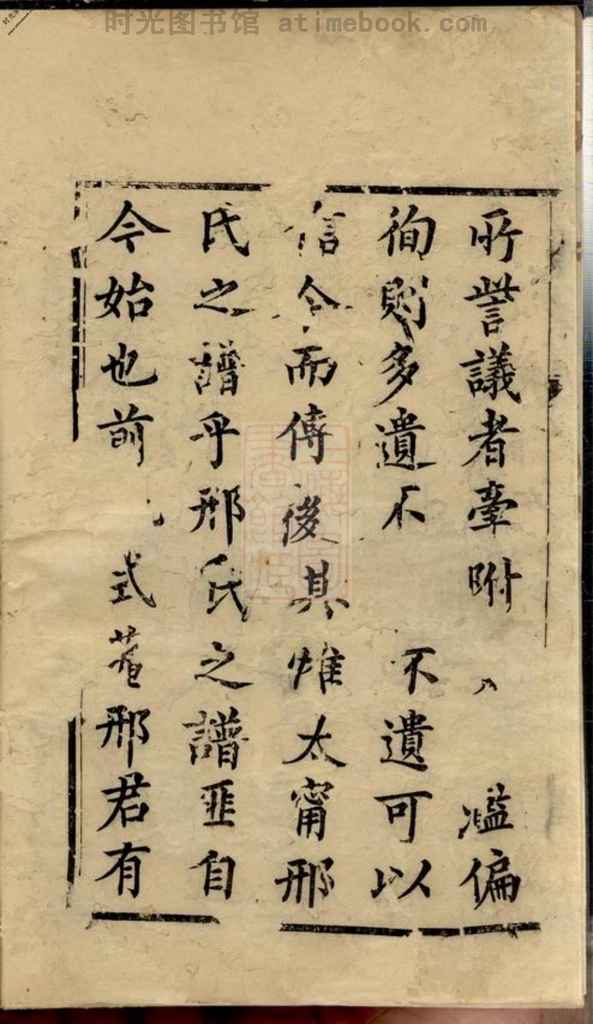 时光图书馆 atimebook.com
所訾議者牽附濫偏
徇則多遺不不遺可以
信今而傳後其惟太甯邢
氏之譜乎邢氏之譜匪自
今始也前式菴邢君有